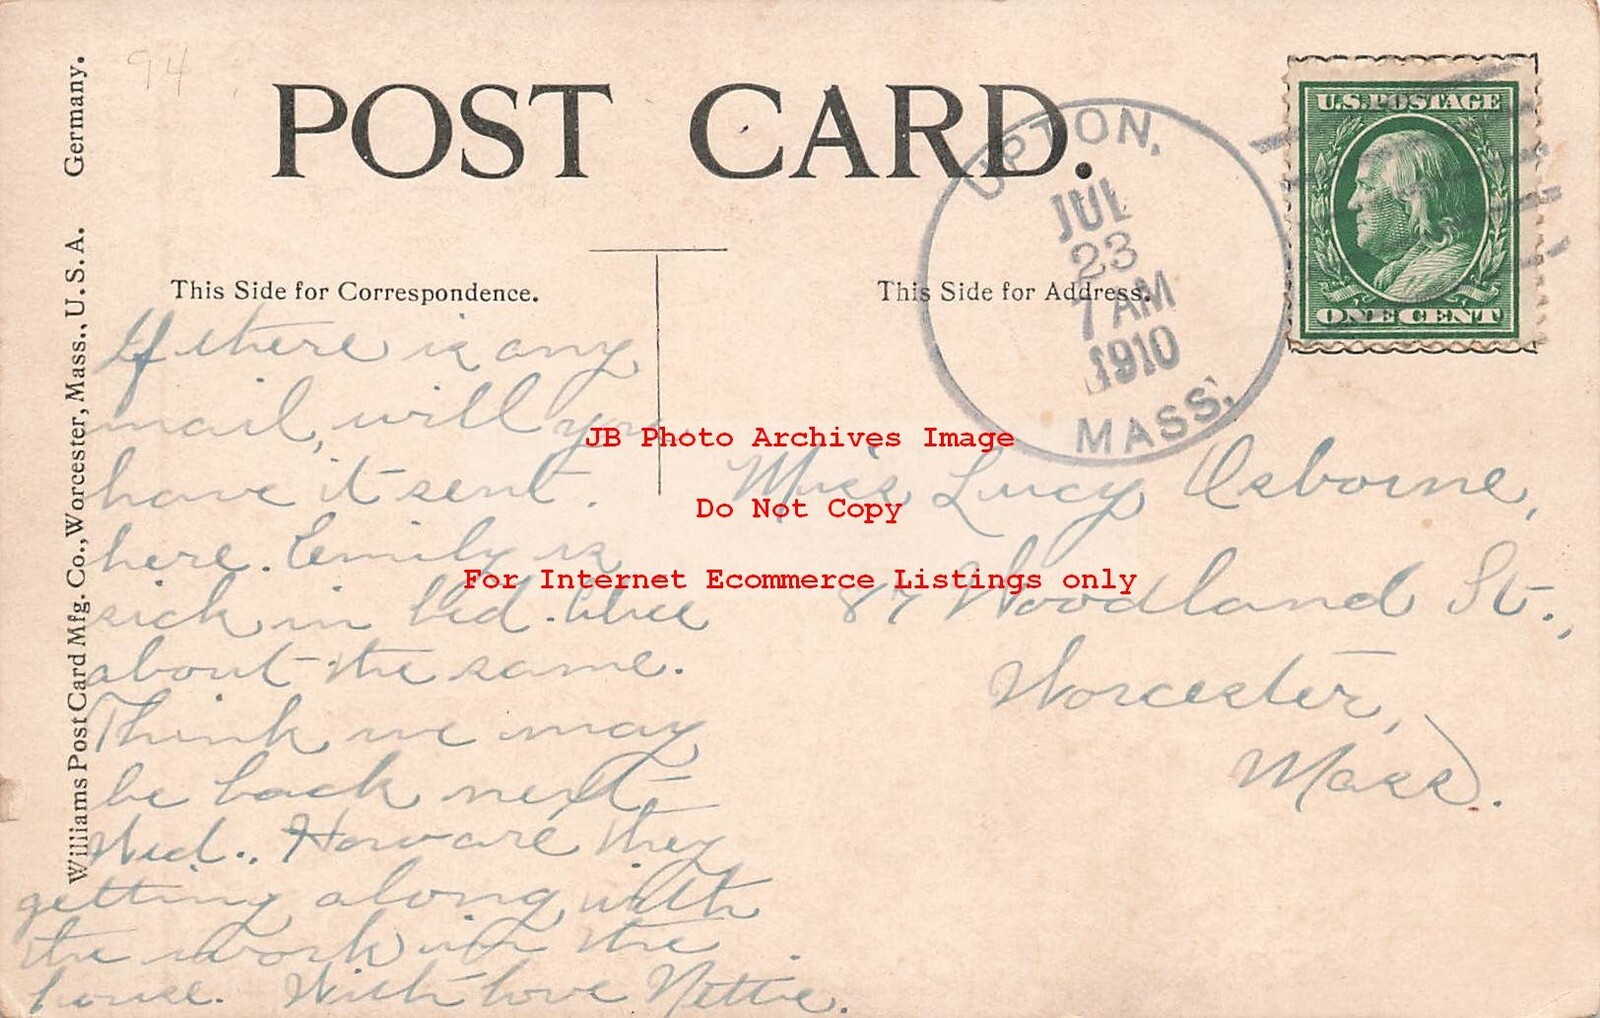 94
POST CARD.
UPTON,
JUL
23
7 AM
1910
MASS.
U.S. POSTAGE
ONE CENT
This Side for Correspondence.
This Side for Address.
Williams Post Card Mfg. Co., Worcester, Mass., U. S. A. Germany.
If there is any
mail, will you
have it sent
here. Emily is
sick in bed.
about the same.
Think we may
be back next
Wed.. How are they
getting along with
the work in the
house. With love Nettie.
Miss Lucy Osborne,
87 Woodland St.,
Worcester,
Mass.
JB Photo Archives Image
Do Not Copy
For Internet Ecommerce Listings only